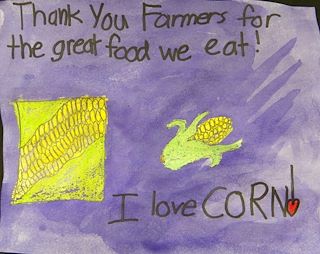 Thank You Farmers for
the great food we eat!
I love CORN!